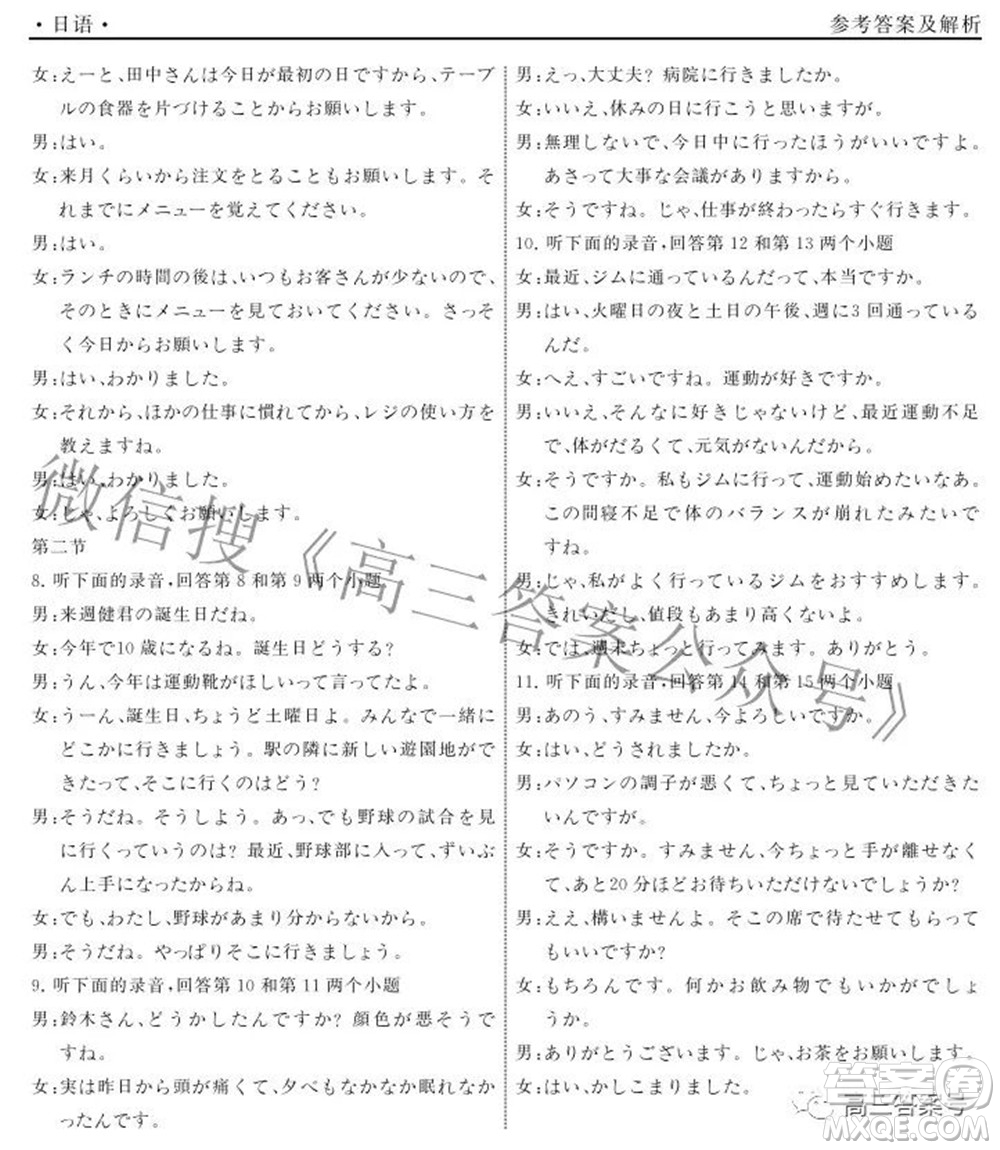 ・日语・
参考答案及解析
女:えーと、田中さんは今日が最初の日ですから、テーブ
ルの食器を片づけることからお願いします。
男:はい。
女:来月くらいから注文をとることもお願いします。そ
れまでにメニューを覚えてください。
男:はい。
女:ランチの時間の後は、いつもお客さんが少ないので、
そのときにメニューを見ておいてください。さっそ
く今日からお願いします。
男:はい、わかりました。
女:それから、ほかの仕事に慣れてから、レジの使い方を
教えますね。
男:はい、わかりました。
女:じゃ、よろしくお願いします。
第二节
8. 听下面的录音,回答第 8 和第 9 两个小题
男:来週健君の誕生日だね。
女:今年で10 歳になるね。誕生日どうする?
男:うん、今年は運動靴がほしいって言ってたよ。
女:うーん、誕生日、ちょうど土曜日よ。みんなで一緒に
どこかに行きましょう。駅の隣に新しい遊園地がで
きたって、そこに行くのはどう?
男:そうだね。そうしよう。あ、でも野球の試合を見
に行くっていうのは? 最近、野球部に入って、ずいぶ
ん上手になったからね。
女:でも、わたし、野球があまり分からないから。
男:そうだね。やっぱりそこに行きましょう。
9. 听下面的录音,回答第 10 和第 11 两个小题
男:鈴木さん、どうかしたんですか? 顔色が悪そうで
すね。
女:実は昨日から頭が痛くて、夕べもなかなか眠れなか
ったんです。
男:えっ、大丈夫? 病院に行きましたか。
女:いいえ、休みの日に行こうと思いますが。
男:無理しないで、今日中に行ったほうがいいですよ。
あさって大事な会議がありますから。
女:そうですね。じゃ、仕事が終わったらすぐ行きます。
10. 听下面的录音,回答第 12 和第 13 两个小题
女:最近、ジムに通っているんだって、本当ですか。
男:はい、火曜日の夜と土日の午後、週に3 回通っている
んだ。
女:へえ、すごいですね。運動が好きですか。
男:いいえ、そんなに好きじゃないけど、最近運動不足
で、体がだるくて、元気がないんだから。
女:そうですか。私もジムに行って、運動始めたいなあ。
この間寝不足で体のバランスが崩れたみたいで
すね。
男:じゃ、私がよく行っているジムをおすすめします。
きれいだし、値段もあまり高くないよ。
女:では、週末ちょっと行ってみます。ありがとう。
11. 听下面的录音,回答第 14 和第 15 两个小题
男:あのう、すみません、今よろしいですか。
女:はい、どうされましたか。
男:パソコンの調子が悪くて、ちょっと見ていただきた
いんですが。
女:そうですか。すみません、今ちょっと手が離せなく
て、あと20 分ほどお待ちいただけないでしょうか?
男:ええ、構いませんよ。そこの席で待たせてもらって
もいいですか?
女:もちろんです。何かお飲み物でもいかがでしょ
うか。
男:ありがとうございます。じゃ、お茶をお願いします。
女:はい、かしこまりました。
微信搜《高三答案公众号》
高三答案号
答案圈
MXQE.COM